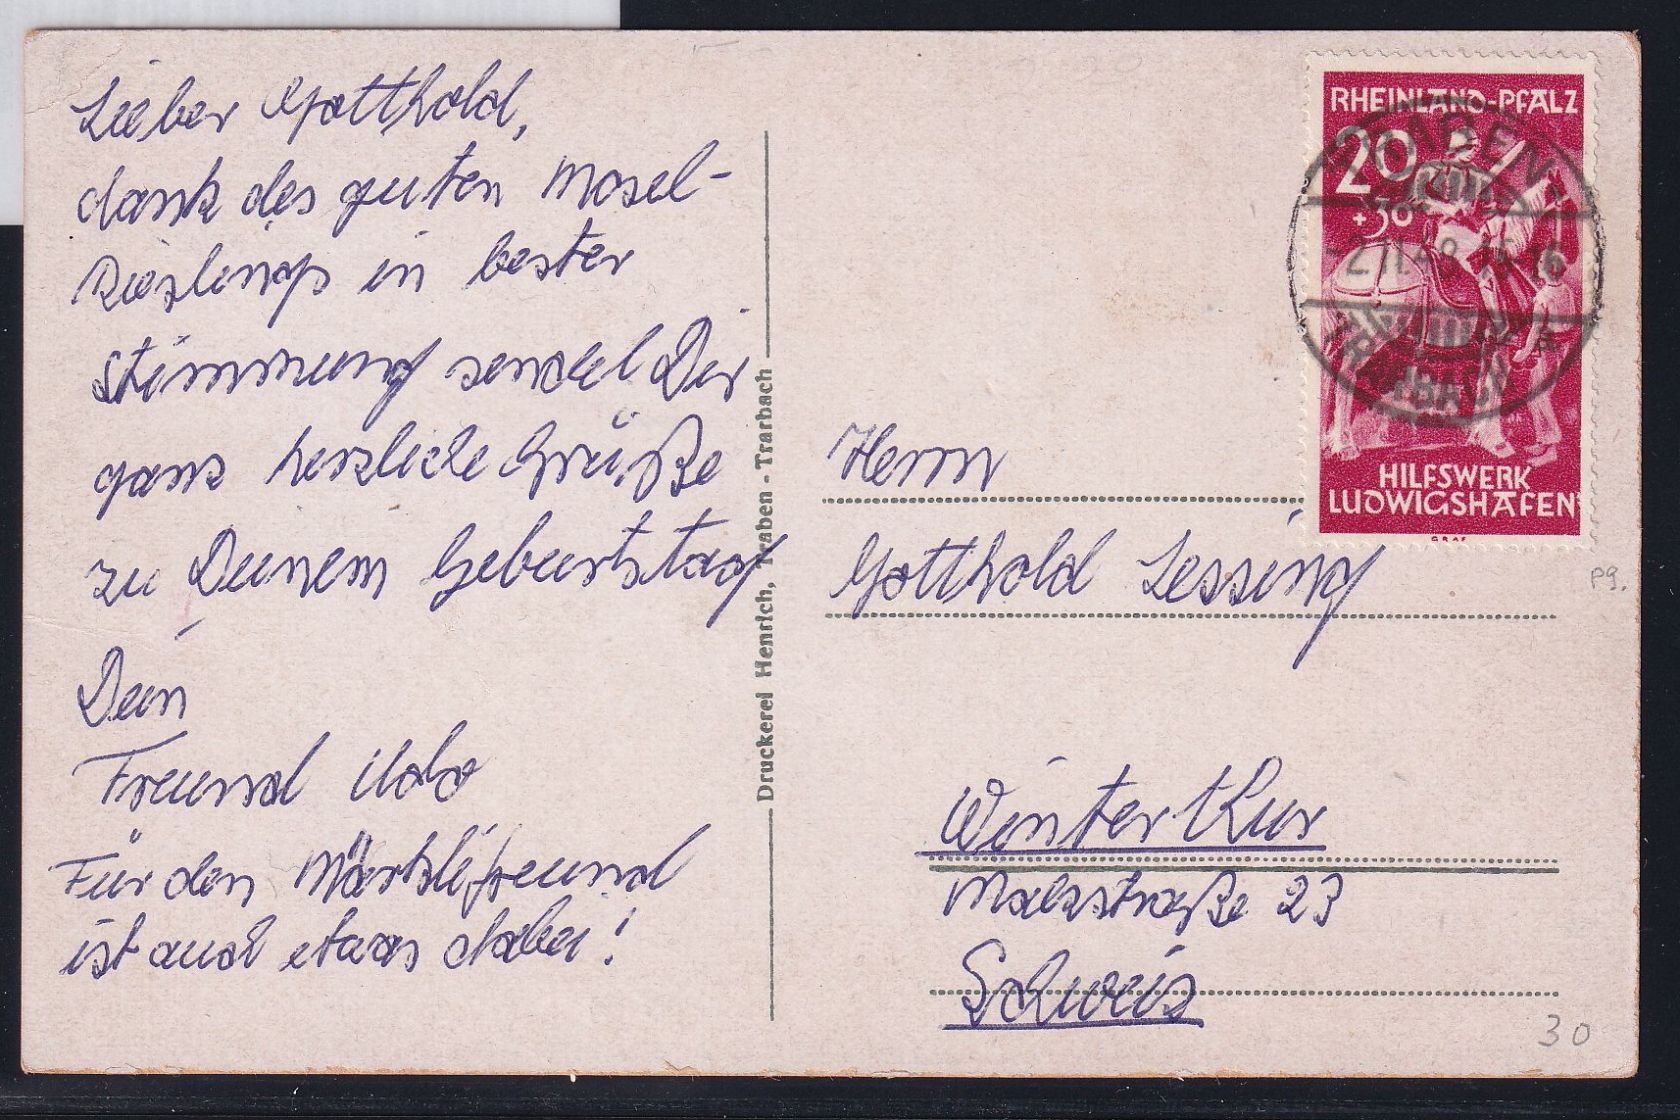 Lieber Gotthold,
dank des guten Mosel-
Rieslings in bester
Stimmung sendet Dir
ganz herzliche Grüße
zu Deinem Geburtstag
Dein
Freund Udo
Für den Märklifreund
ist auch etwas dabei!
Druckerei Henrich, Traben-Trarbach
RHEINLAND-PFALZ
20
+30
HILFSWERK
LUDWIGSHAFEN
GRAF
TRABEN
-2.11.48.15-16
TRARBACH
Herrn
Gotthold Lessing
Winterthur
23
Schweiz
P9.
30